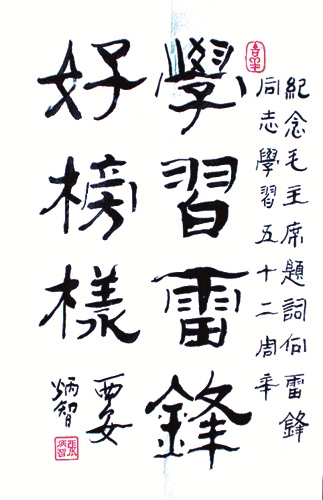 紀念毛主席題詞向雷鋒
同志學習五十二周年
學習雷鋒
好榜樣
西安
炳智